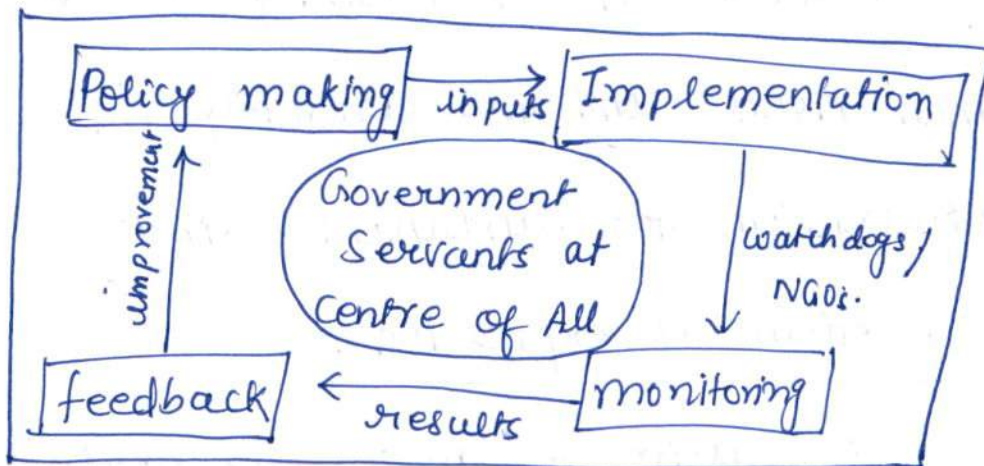 Policy making
inputs
Implementation
improvement
Government
Servants at
Centre of All
watchdogs /
NGOs.
feedback
results
monitoring